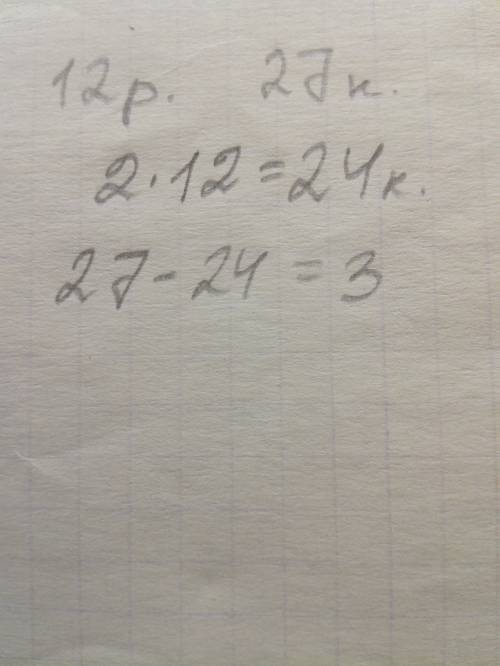 12р. 27к.
2·12=24к.
27-24=3